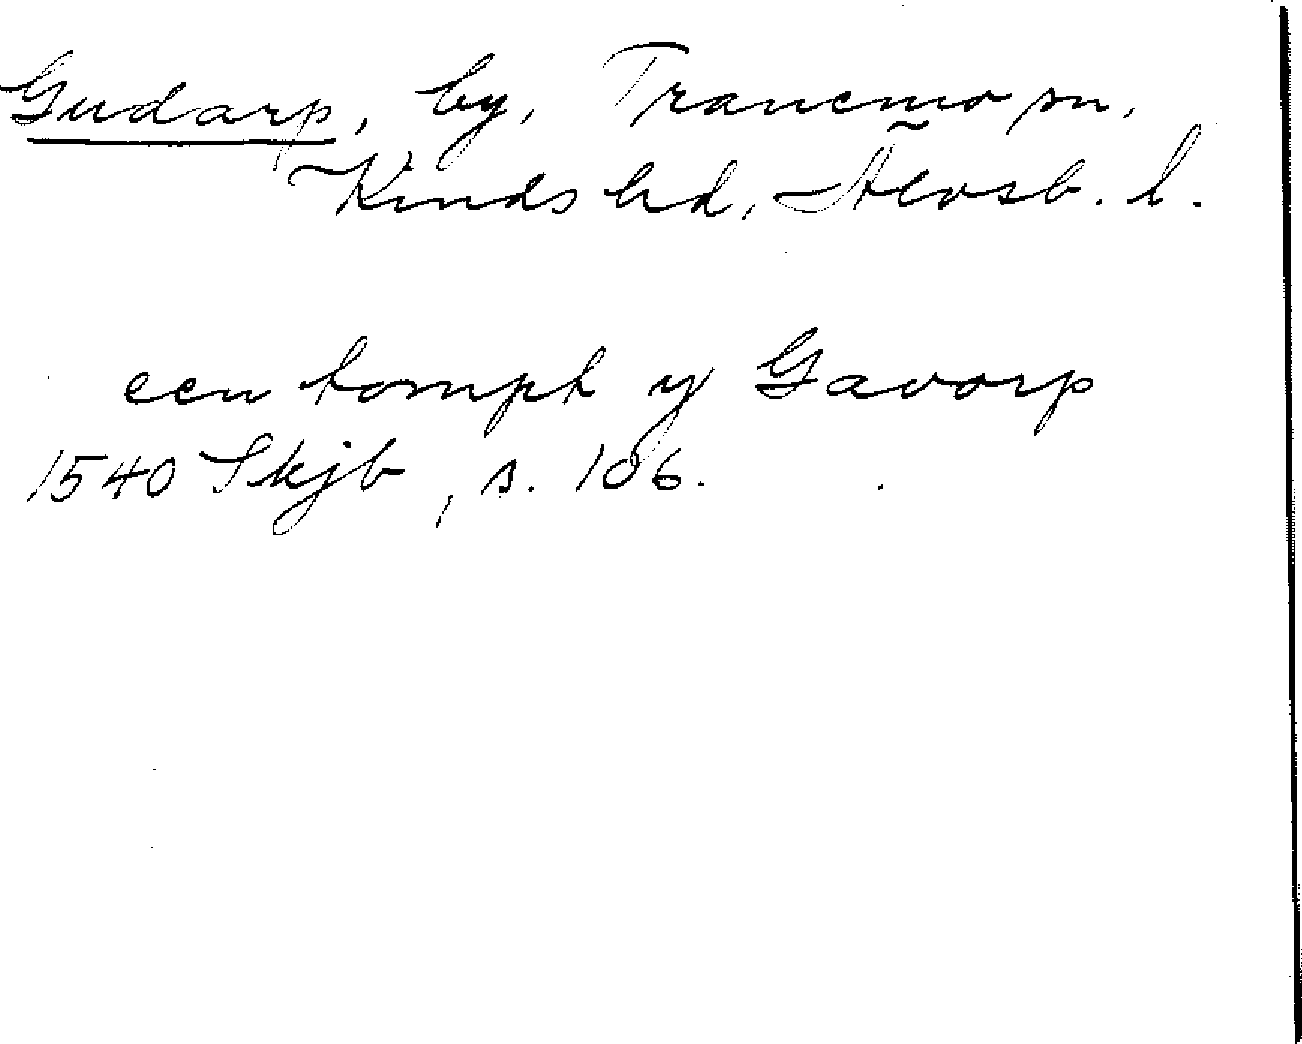 Gudarp, by, Tranemo sn,
Kinds hd, Älvsb. l.
een tompt y Gavorp
1540 Skjb, s. 106.